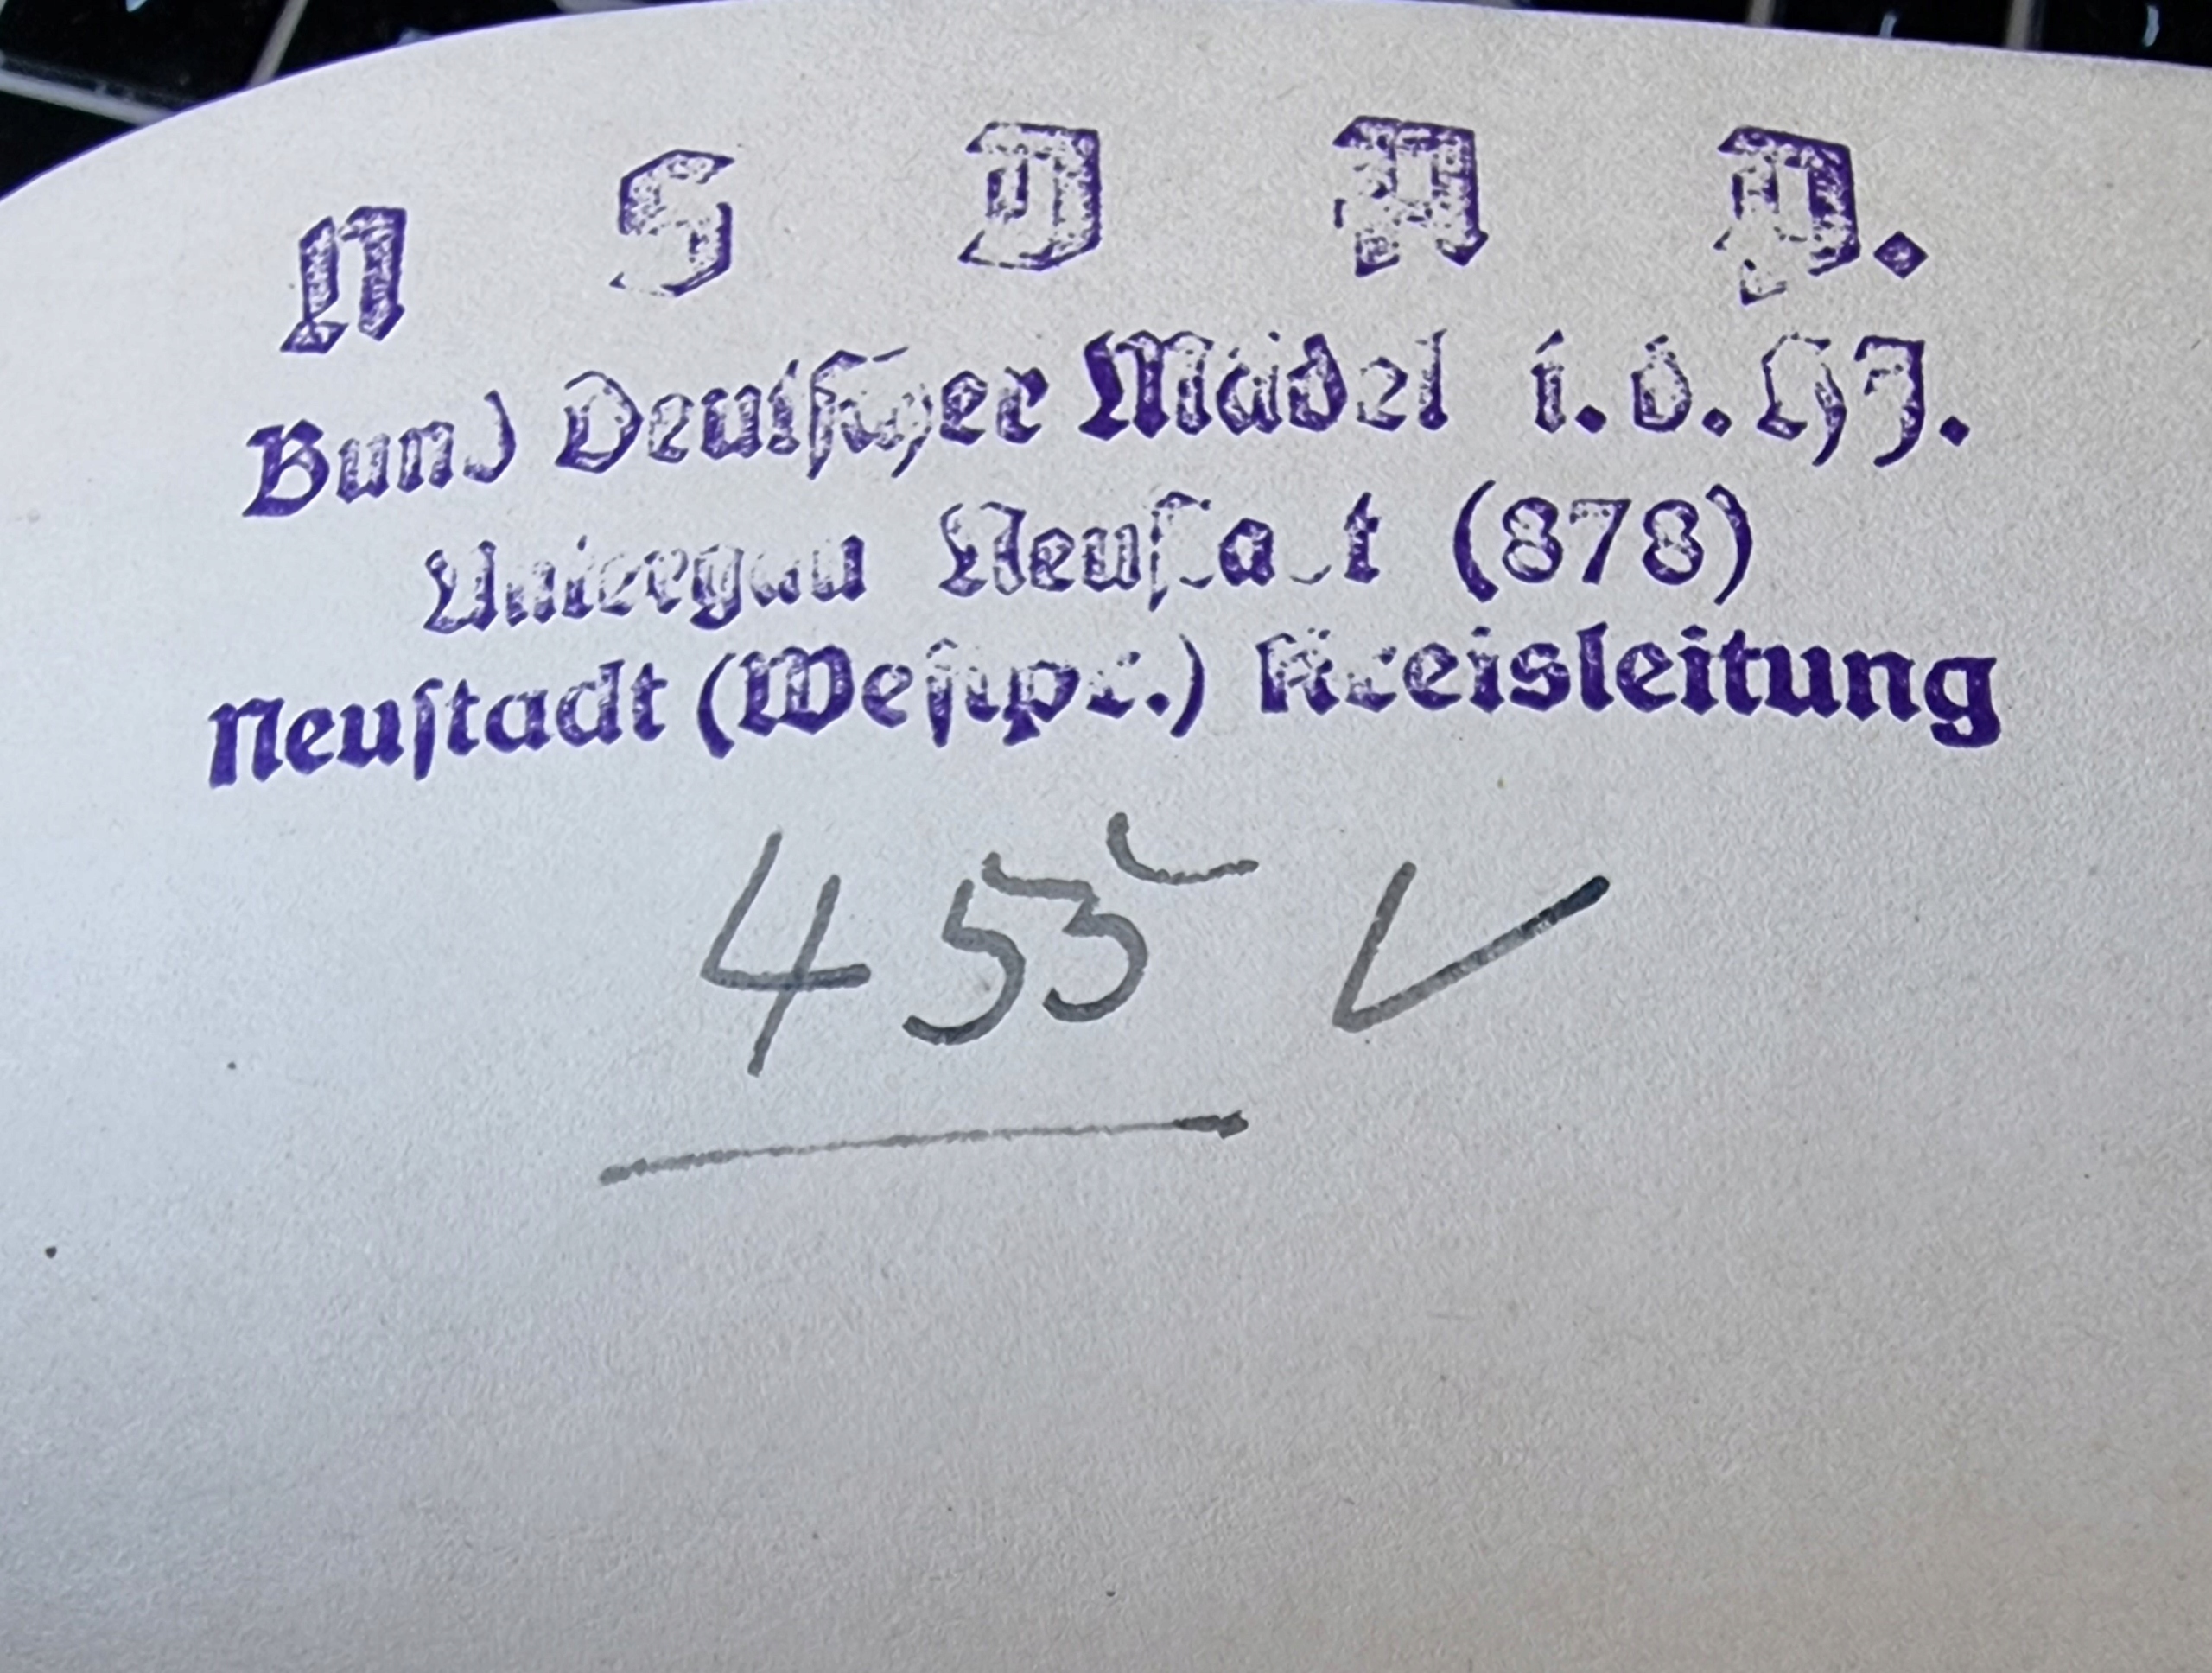 N S D A P.
Bund Deutscher Mädel i. d. HJ.
Untergau Neustadt (878)
Neustadt (Westpr.) Kreisleitung
455 V